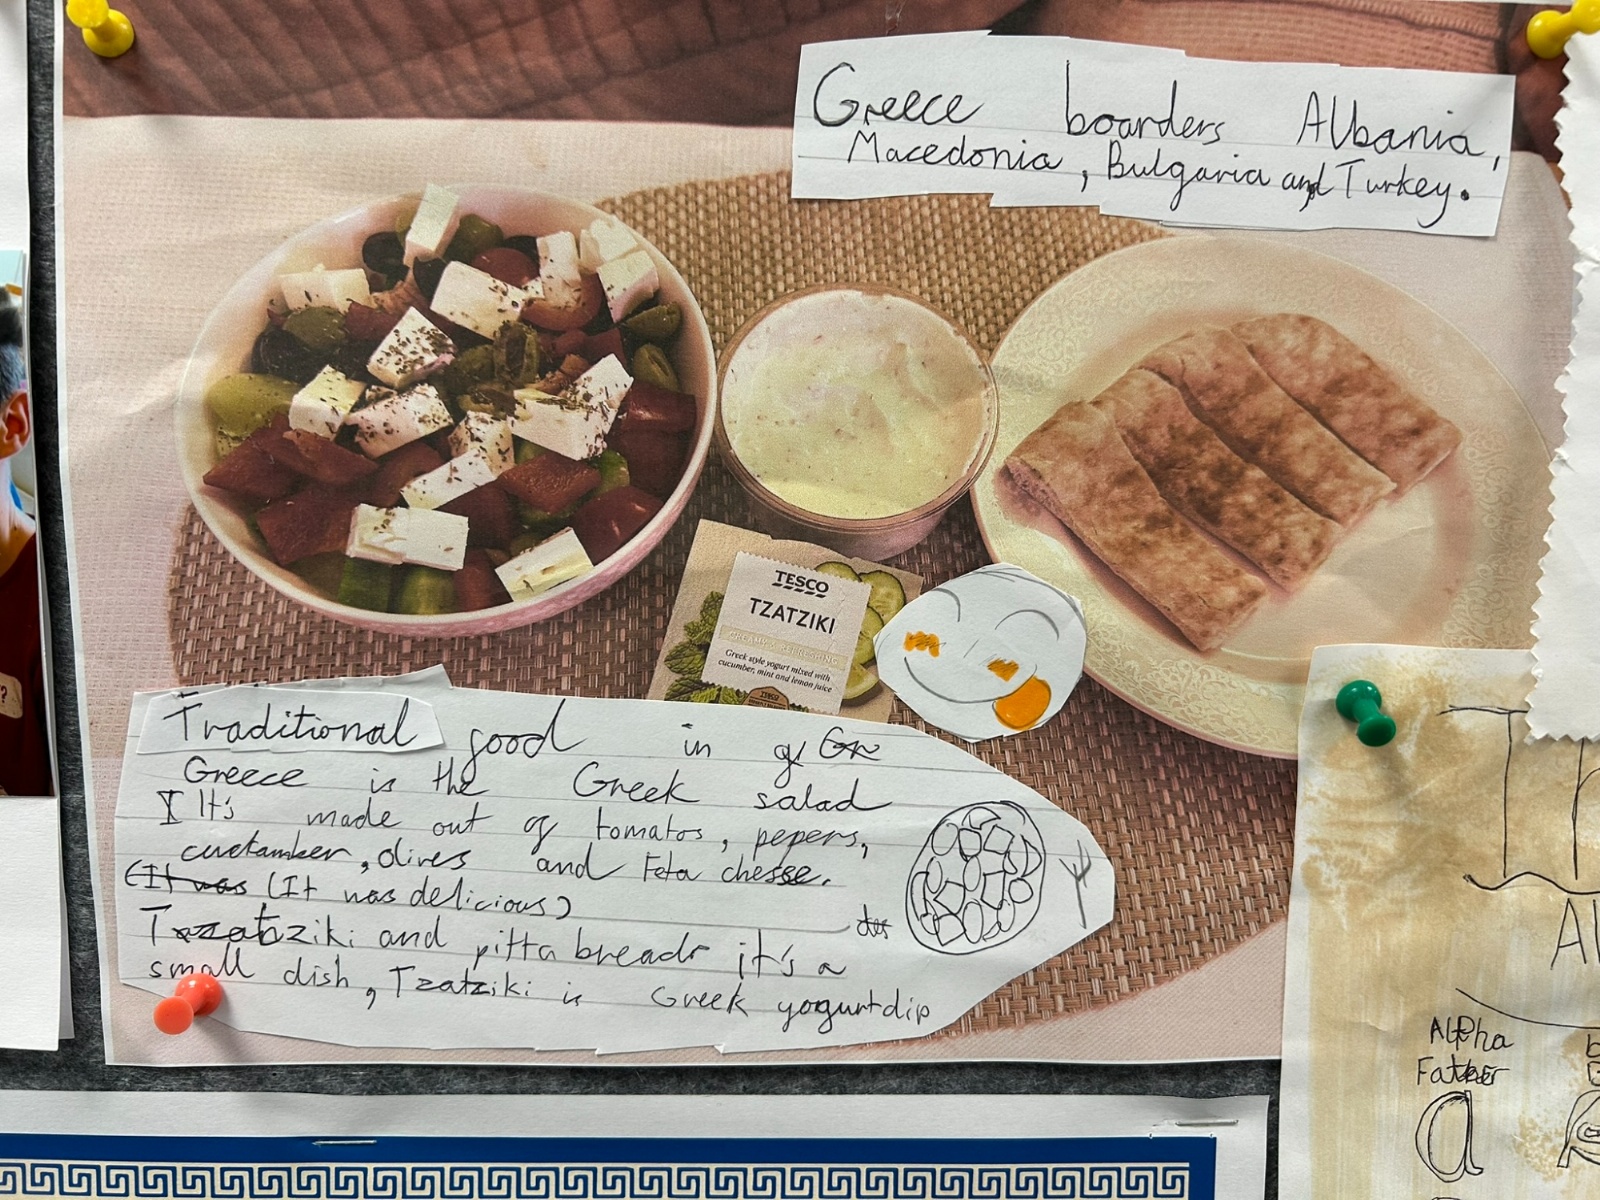 Greece boarders Albania,
Macedonia, Bulgaria and Turkey.
TESCO
TZATZIKI
CREAMY & REFRESHING
Greek style yogurt mixed with
cucumber, mint and lemon juice
TESCO
Traditional food in g Gre
Greece is the Greek salad
I It's made out of tomatos, pepers,
cuctamber, olives and Feta chesse.
(It was (It was delicious)
Tzatziki and pitta breads it's a
small dish, Tzatziki is Greek yogurt dip
?
Th
Al
Alpha
Father
a